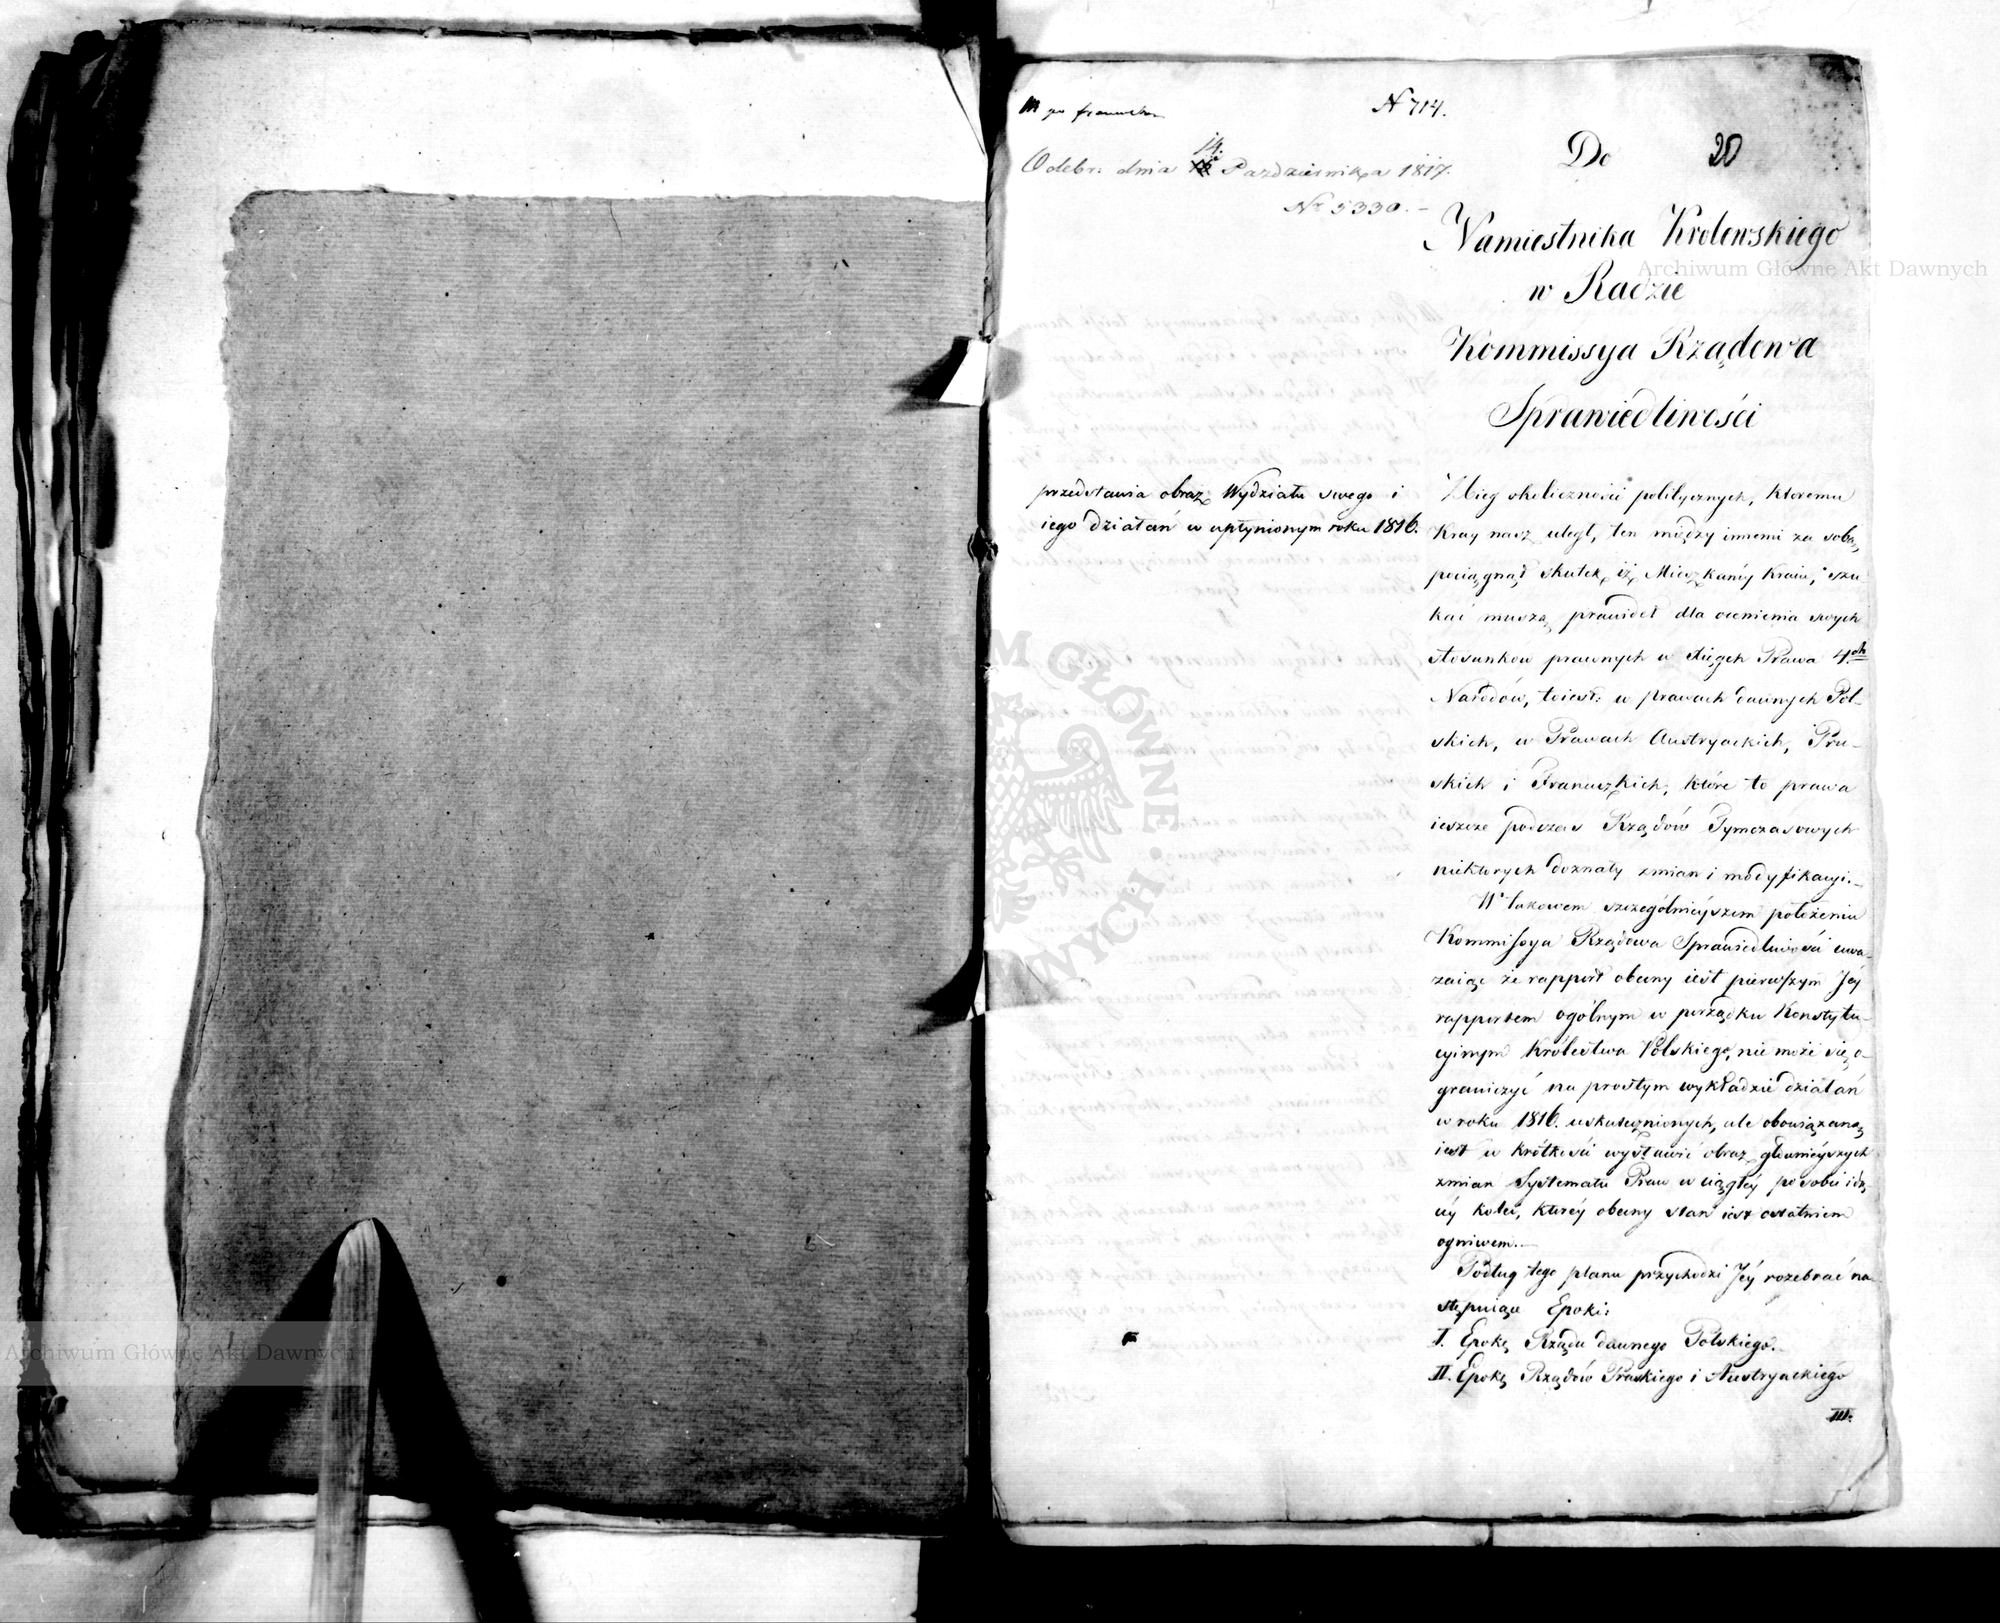 po francusku
N 714.
Do
20
Odebr: dnia 14. Pazdziernika 1817.
Nr 5330. –
Namiestnika Krolewskiego
w Radzie
Kommissya Rządowa
Sprawiedliwości
przedstawia obraz Wydziału swego i
iego działań w upłynionym roku 1816.
Zbieg okoliczności politycznych, ktoremu
Kray nasz uległ, ten między innemi za sobą
pociągnął skutek, iż Mieszkańcy Kraiu, szu
kać muszą prawideł dla ocenienia swych
stosunkow prawnych w xięgach Prawa 4ch
Narodów, toiest: w prawach dawnych Pol-
skich, w Prawach Austryackich, Pru-
skich i Francuzkich, które to prawa
ieszcze podczas Rządów Tymczasowych
niektorych doznały zmian i modyfikacyi.–
W takowem szczególnieyszem położeniu
Kommissya Rządowa Sprawiedliwości uwa-
zaiąc że rapport obecny iest pierwszym Jey
rapportem ogólnym w porządku Konstytu-
cyinym Królestwa Polskiego, nie może się o-
graniczyć na prostym wykładzie działań
w roku 1816. uskutecznionych, ale obowiązaną
iest w krótkości wystawić obraz głownieyszych
zmian Systematu Praw w ciągłey po sobie idą
cey kolei, ktorey obecny stan iest ostatniem
ogniwem.–
Podług tego planu przychodzi Jey rozebrać na
stępuiące Epoki:
I. Epokę Rządu dawnego Polskiego.
II. Epokę Rządów Pruskiego i Austryackiégo
III.
Archiwum Główne Akt Dawnych
Archiwum Główne Akt Dawnych